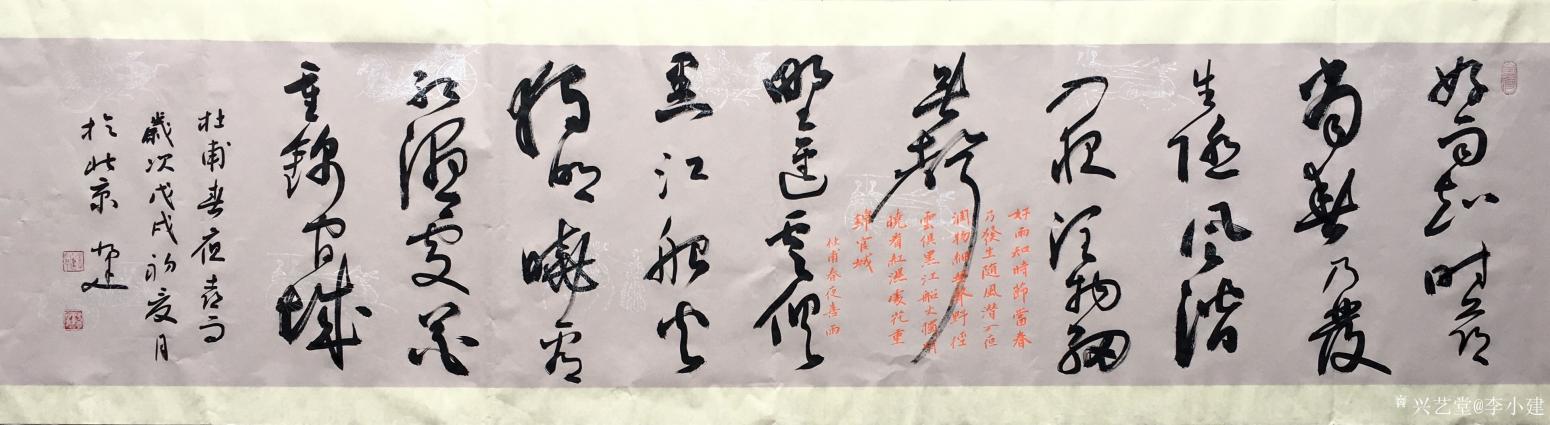 好雨知时節
當春乃發
生隨風潛
入夜潤物細
無聲
野徑雲俱
黑江船火
獨明曉看
紅濕處花
重錦官城
好雨知時節當春
乃發生隨風潛入夜
潤物細無聲野徑
雲俱黑江船火獨明
曉看紅濕處花重
錦官城
杜甫春夜喜雨
杜甫春夜喜雨
歲次戊戌初夏月
於北京
兴艺堂@李小建